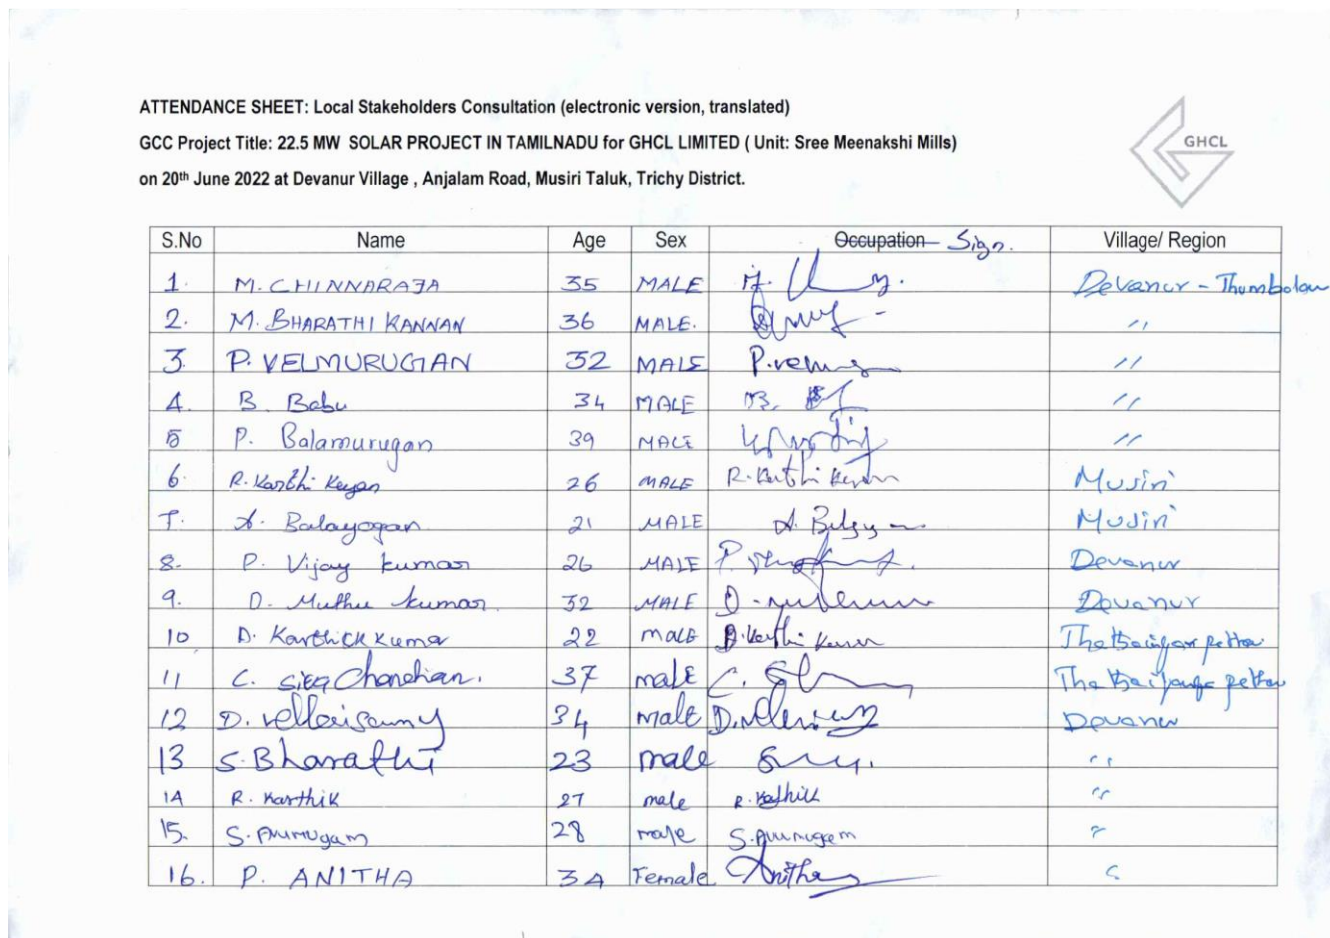 ATTENDANCE SHEET: Local Stakeholders Consultation (electronic version, translated)
GCC Project Title: 22.5 MW SOLAR PROJECT IN TAMILNADU for GHCL LIMITED ( Unit: Sree Meenakshi Mills)
on 20th June 2022 at Devanur Village , Anjalam Road, Musiri Taluk, Trichy District.
GHCL
S.No Name Age Sex Occupation Sign. Village/ Region
1. M. CHINNARAJA 35 MALE Devanur - Thumbalam
2. M. BHARATHI KANNAN 36 MALE. "
3. P. VELMURUGAN 32 MALE "
4. B. Babu 34 MALE B. "
5 P. Balamurugan 39 MALE "
6. R. Karthi Keyan 26 MALE R. Karthi Keyan Musiri
7. Balayogan 21 MALE Musiri
8. P. Vijay kumar 26 MALE P. Devanur
9. D. Muthu kumar. 32 MALE D. Devanur
10 D. Karthick kumar 22 male
11 C. Siva Chandran. 37 male C.
12 D. vellaisamy 34 male Devanur
13 S. Bharathi 23 male "
14 R. Karthik 27 male R. Karthik "
15. S. Arumugam 28 male S. Arumugam "
16. P. ANITHA 34 Female Anitha